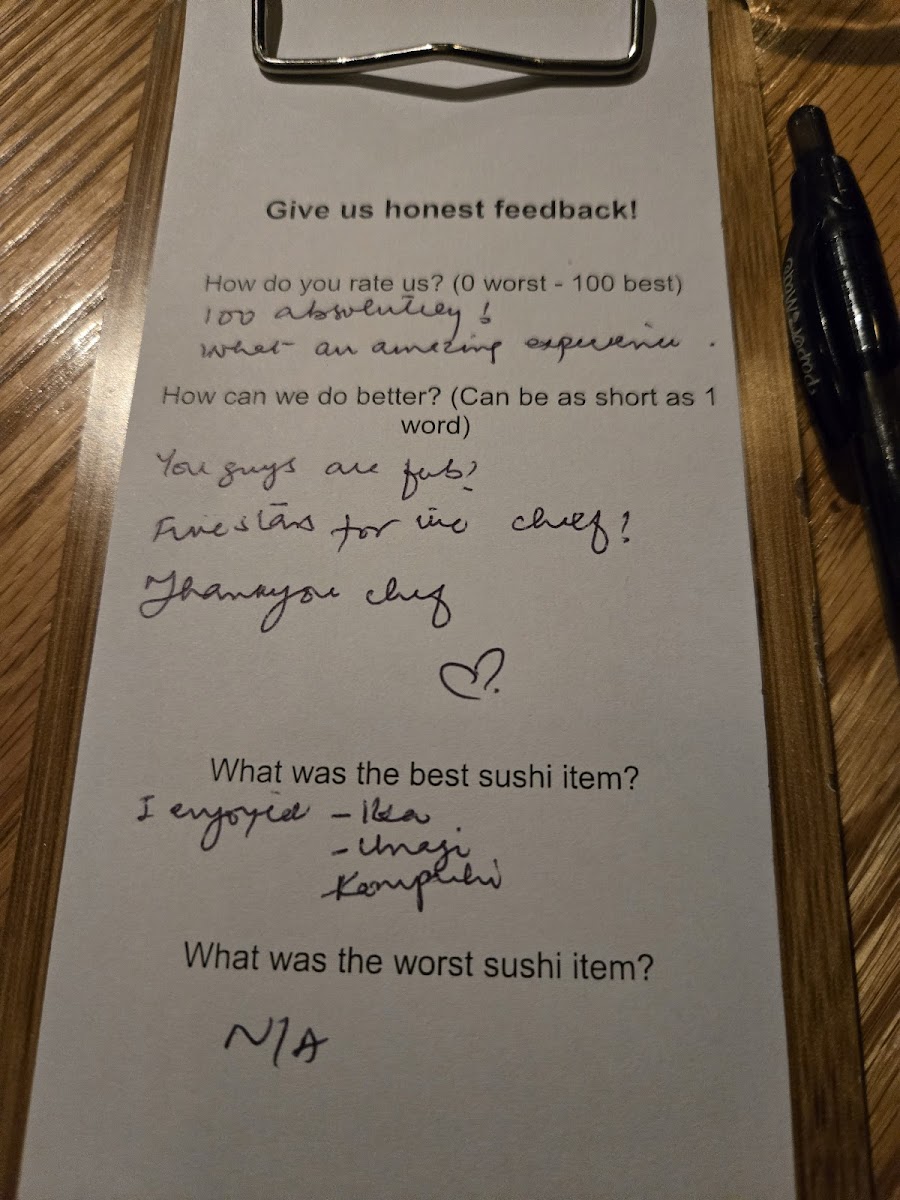 Give us honest feedback!
How do you rate us? (0 worst - 100 best)
100 absolutley!
What an amazing experience.
How can we do better? (Can be as short as 1
word)
You guys are fab!
Five stars for the chef!
Thankyou chef
What was the best sushi item?
I enjoyed - Ika
- Unagi
What was the worst sushi item?
N/A